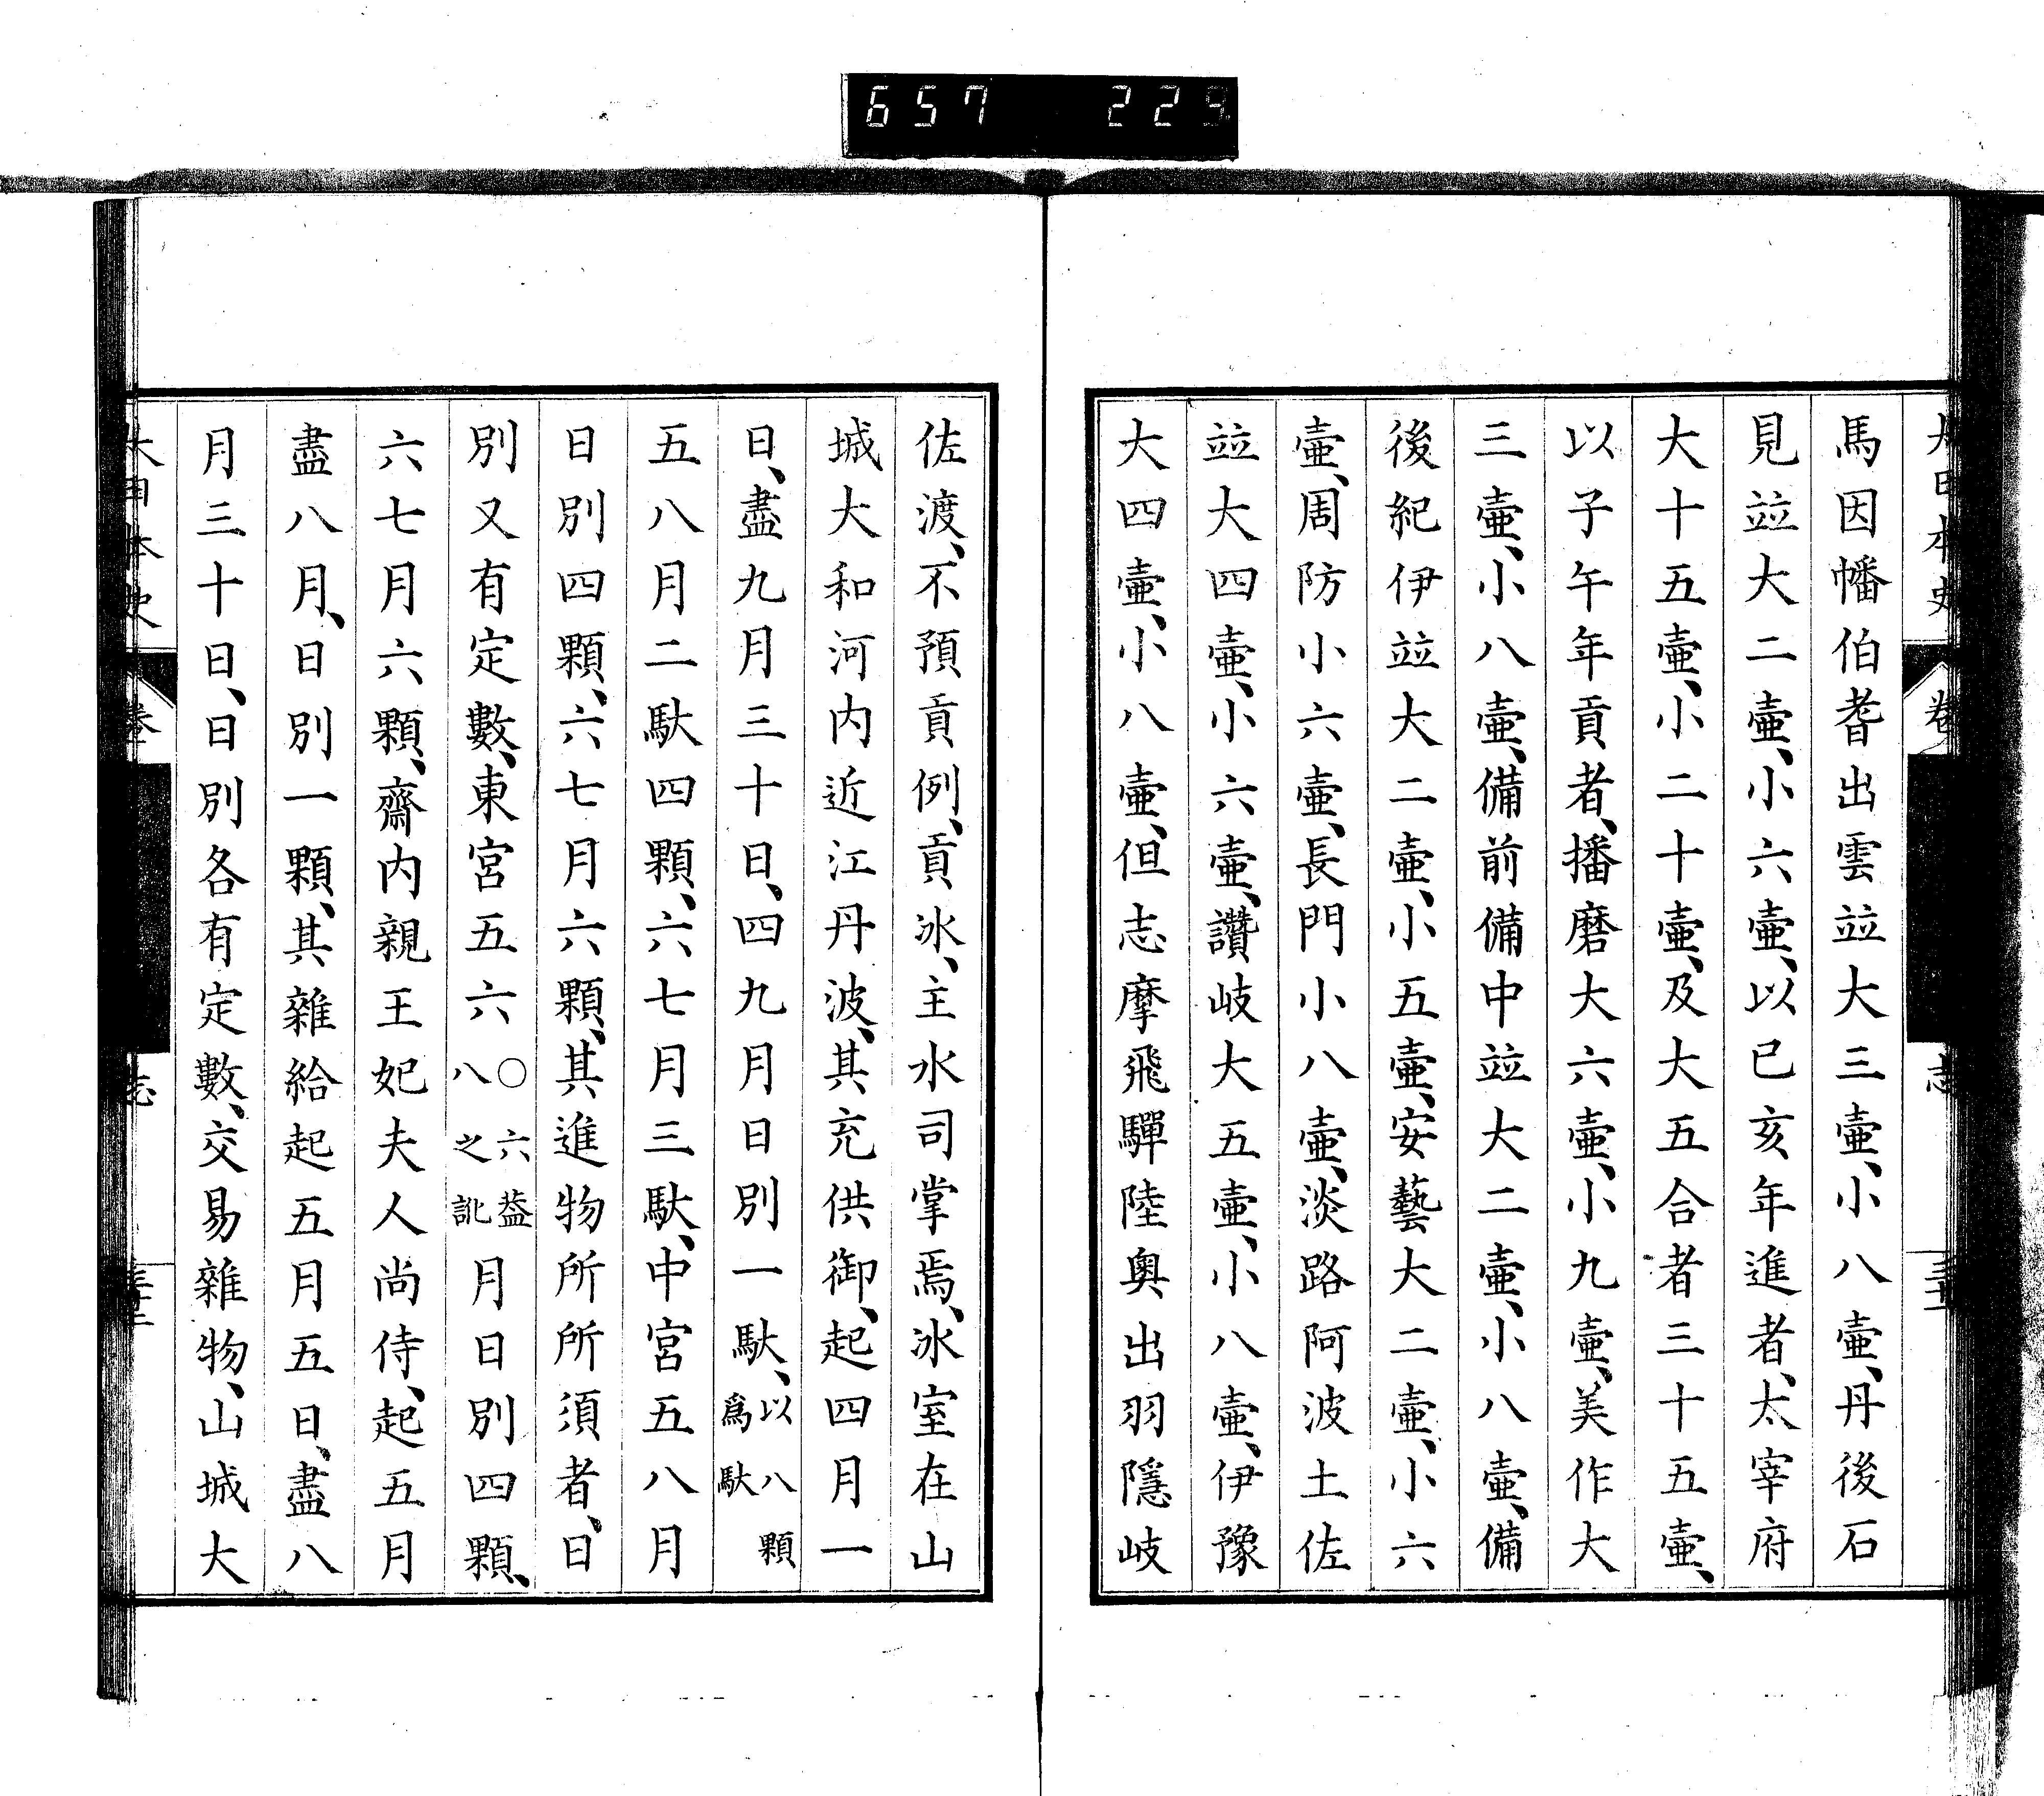 657 229
馬因幡伯耆出雲竝大三壷、小八壷、丹後石
見竝大二壷、小六壷、以已亥年進者、太宰府
大十五壷、小二十壷、及大五合者三十五壷、
以子午年貢者、播磨大六壷、小九壷、美作大
三壷、小八壷、備前備中竝大二壷、小八壷、備
後紀伊竝大二壷、小五壷、安藝大二壷、小六
壷、周防小六壷、長門小八壷、淡路阿波土佐
竝大四壷、小六壷、讚岐大五壷、小八壷、伊豫
大四壷、小八壷、但志摩飛驒陸奥出羽隱岐
佐渡、不預貢例、貢氷、主水司掌焉、氷室在山
城大和河内近江丹波、其充供御、起四月一
日、盡九月三十日、四九月日別一駄、以八顆爲駄
五八月二駄四顆、六七月三駄、中宮五八月
日別四顆、六七月六顆、其進物所所須者、日
別又有定數、東宮五六〇六葢八之訛月日別四顆、
六七月六顆、齋内親王妃夫人尚侍、起五月
盡八月、日別一顆、其雜給起五月五日、盡八
月三十日、日別各有定數、交易雜物、山城大
大日本史 卷 志